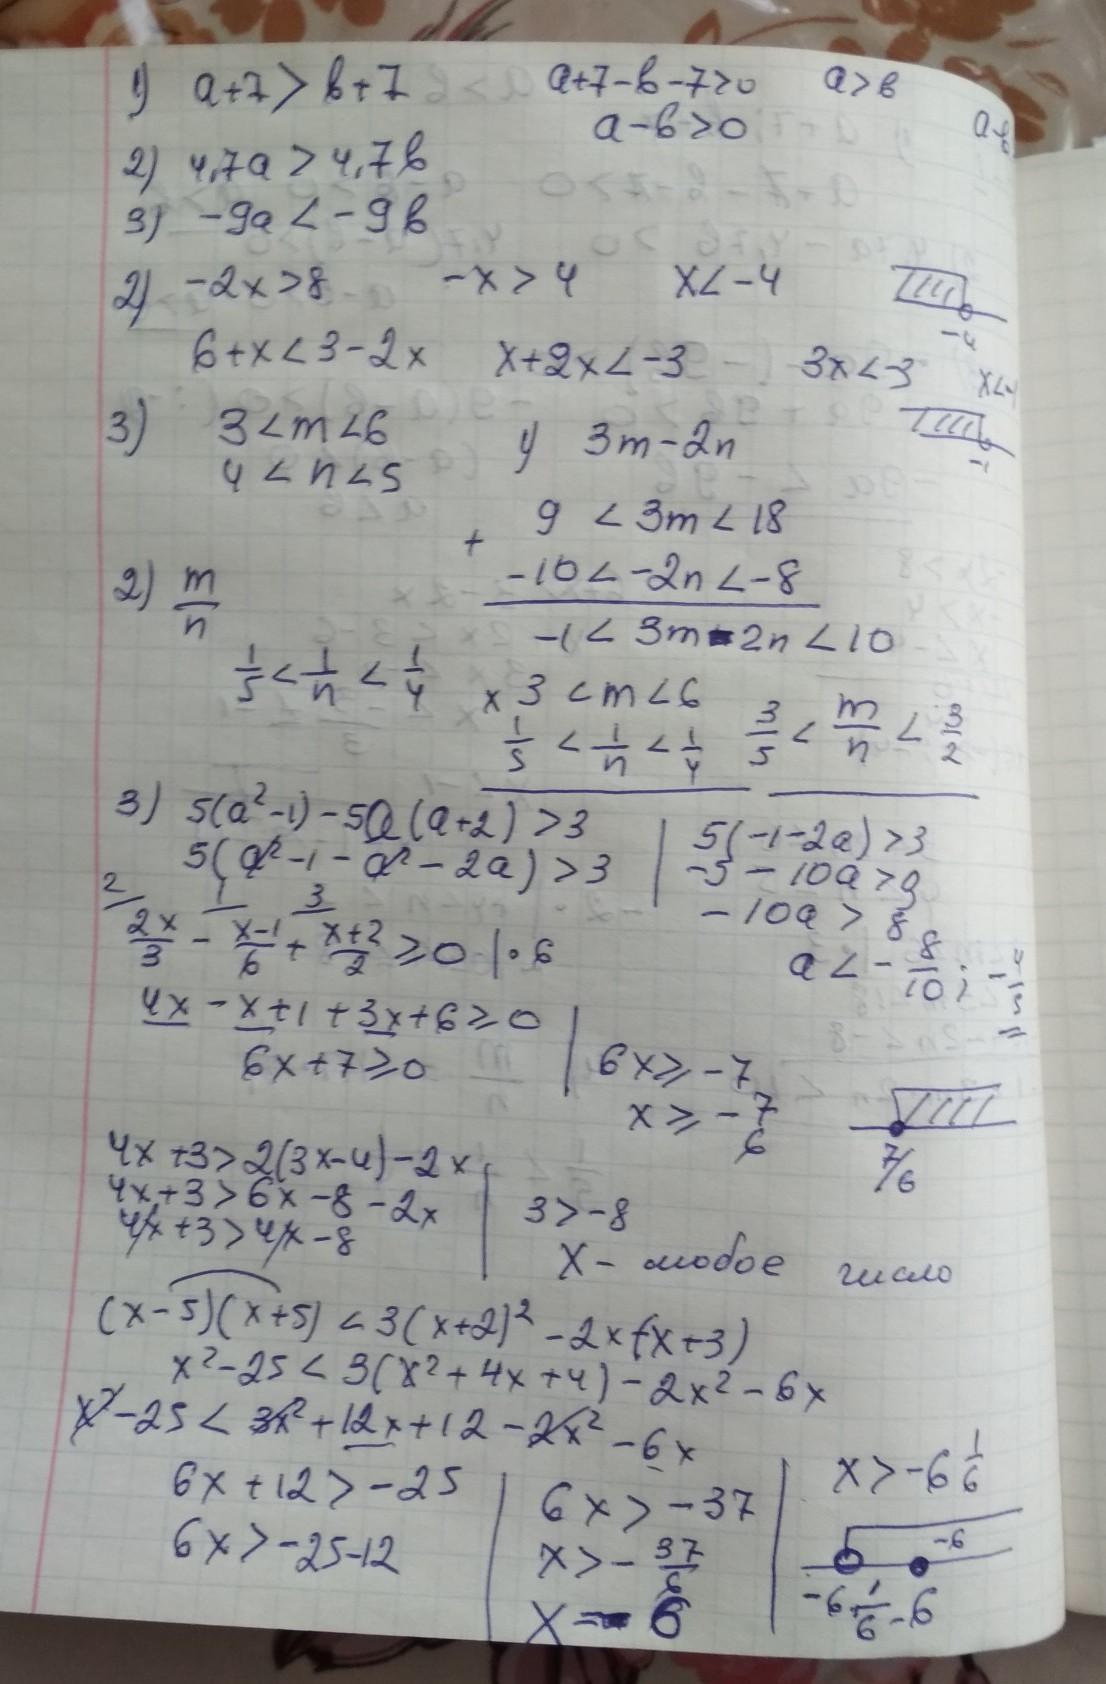 1) a+7>b+7   a+7-b-7>0   a>b
a-b>0   a-b
2) 4,7a > 4,7b
3) -9a < -9b
2) -2x>8   -x>4   x<-4
-4
6+x<3-2x   x+2x<-3   3x<-3   x<-1
-1
3) 3<m<6   1) 3m-2n
4<n<5
9 < 3m < 18
+
-10 < -2n < -8
-1 < 3m-2n < 10
2) m/n
1/5 < 1/n < 1/4
x 3<m<6   3/5 < m/n < 3/2
1/5 < 1/n < 1/4
3) 5(a²-1)-5a(a+2)>3   | 5(-1-2a)>3
5(a²-1-a²-2a)>3   | -5-10a>3
-10a>8
2   1   3
2x/3 - x-1/6 + x+2/2 ≥ 0 |·6   a < -8/10; -4/5
4x-x+1+3x+6≥0
6x+7≥0   | 6x≥-7
x≥-7/6
7/6
4x+3>2(3x-4)-2x
4x+3>6x-8-2x   | 3>-8
4x+3>4x-8
x - любое число
(x-5)(x+5)<3(x+2)²-2x(x+3)
x²-25<3(x²+4x+4)-2x²-6x
x²-25<3x²+12x+12-2x²-6x
6x+12>-25   | 6x>-37   | x>-6 1/6
6x>-25-12   | x>-37/6   -6
-6 1/6   -6
x=-6